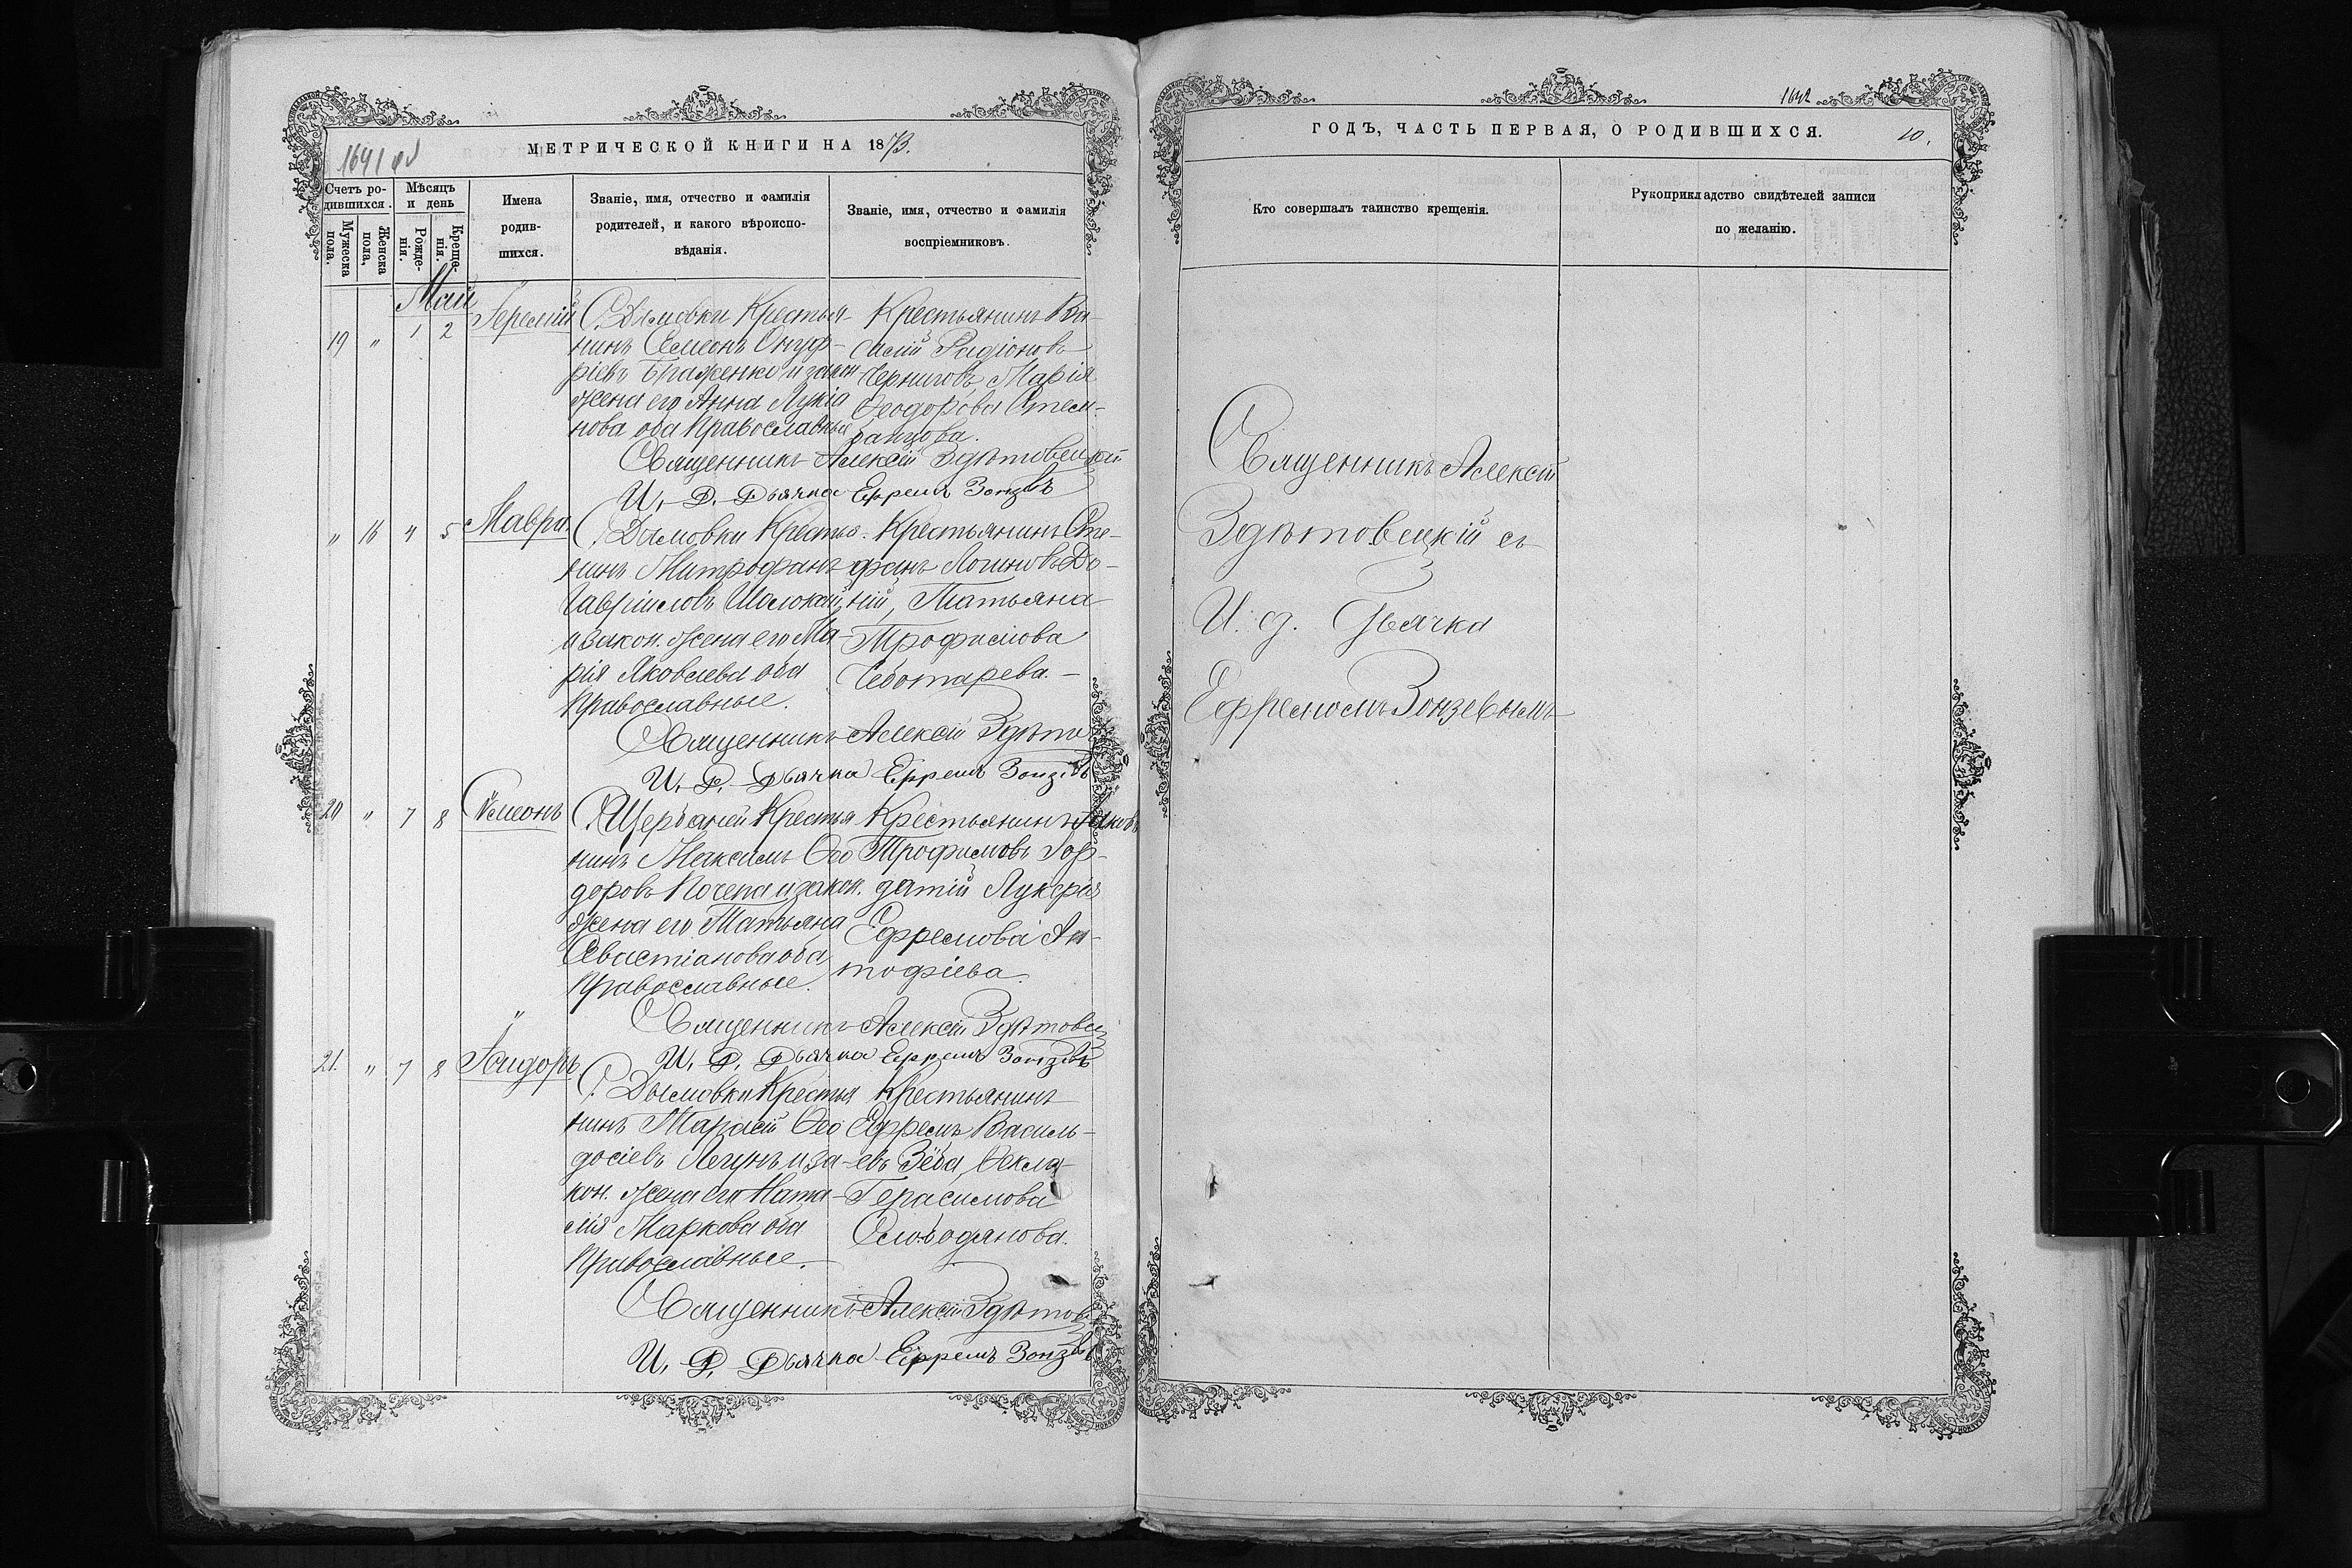 1641 об
МЕТРИЧЕСКОЙ КНИГИ НА 1873.
Счетъ ро-
дившихся.
Мужеска
пола.
Женска
пола,
Мѣсяцъ
и день
Рожде-
нія.
Креще-
нія.
Имена
родив-
шихся.
Званіе, имя, отчество и фамилія
родителей, и какого вѣроиспо-
вѣданія.
Званіе, имя, отчество и фамилія
воспріемниковъ.
Май
19 " 1 2 Іеремій
С. Дымовки Крестья-
нинъ Семеонъ Онуф-
ріевъ Браженко и закон
жена его Анна Лукіа
нова оба Православные
Крестьянинъ Ва-
силій Радіоновъ
Черниговъ, Марія
Ѳеодорова Стем-
банцова.
Священникъ Алексій Здѣтовецкій
И. Д. Дьячка Ефремъ Зонзевъ
" 16 4 5 Мавра
С. Дымовки Крестья-
нинъ Митрофанъ
Гавріиловъ
и закон. жена его Ма-
рія Яковлева оба
Православные.
Крестьянинъ Сте-
фанъ Логиновъ До-
ній, Татьяна
Трофимова
Чеботарева. -
Священникъ Алексій Здѣто
И. Д. Дьячка Ефремъ Зонзевъ
20 " 7 8 Семеонъ
С. Щербаней Крестья
нинъ Максимъ Ѳео
доровъ Почепа и закон.
жена его Татьяна
Севастіанова оба
Православные.
Крестьянинъ Іаковъ
Трофимовъ Гор-
датій Лукерія
Ефремова Ан-
тофіева
Священникъ Алексій Здѣтовец
И. Д. Дьячка Ефремъ Зонзевъ
21. " 7 8 Исидоръ
С. Дымовки Крестья
нинъ Тарасій Ѳео
досіевъ Легунъ и за-
кон. жена его Ната-
лія Маркова оба
Православные.
Крестьянинъ
Ефремъ Василь-
евъ Зёба, Ѳекла
Герасимова
Слободянова.
Священникъ Алексій Здѣтов
И. Д. Дьячка Ефремъ Зонзевъ
1642
ГОДЪ, ЧАСТЬ ПЕРВАЯ, О РОДИВШИХСЯ.
10.
Кто совершалъ таинство крещенія.
Рукоприкладство свидѣтелей записи
по желанію.
Священникъ Алексій
Здѣтовецкій съ
И. д. Дьячка
Ефремомъ Зонзевымъ